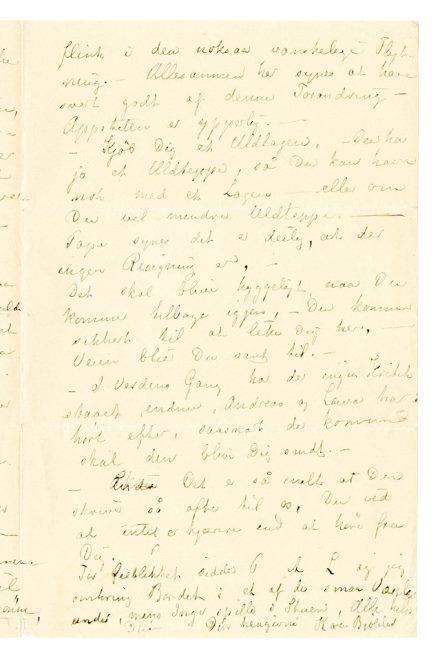 flink i den noksaa vanskelige Flyt-
ning. – Allesammen her synes at have
svært godt af denne Forandring –
Appetiten er ypperlig. –
– Kjøb Dig et Uldlagen, – Du har
jo et Uldteppe, så Du kan have
nok med et Lagen – eller om
Du vil mindre Uldteppe. –
Papa synes det er deilig, at der
ingen Rengning er, –
Det skal blive hyggeligt naa Du
kommer tilbage igjen, – Du kommer
sikkert til at like Dig her, –
Veien blir Du vant til. –
– I Verdens Gang har der ingen Kritik
staaet endnu, Andreas og Laura har
hørt efter, saasnart de kommer
skal den blive Dig sendt. –
– Det er så snilt at Du
skriver så ofte til os, Du ved
at intet er kjærere end at høre fra
Dig.
I sidder A L og jeg
omkring Bordet i et af de smaa
mens Inga spille i Stuen, Alle
Din hengivne